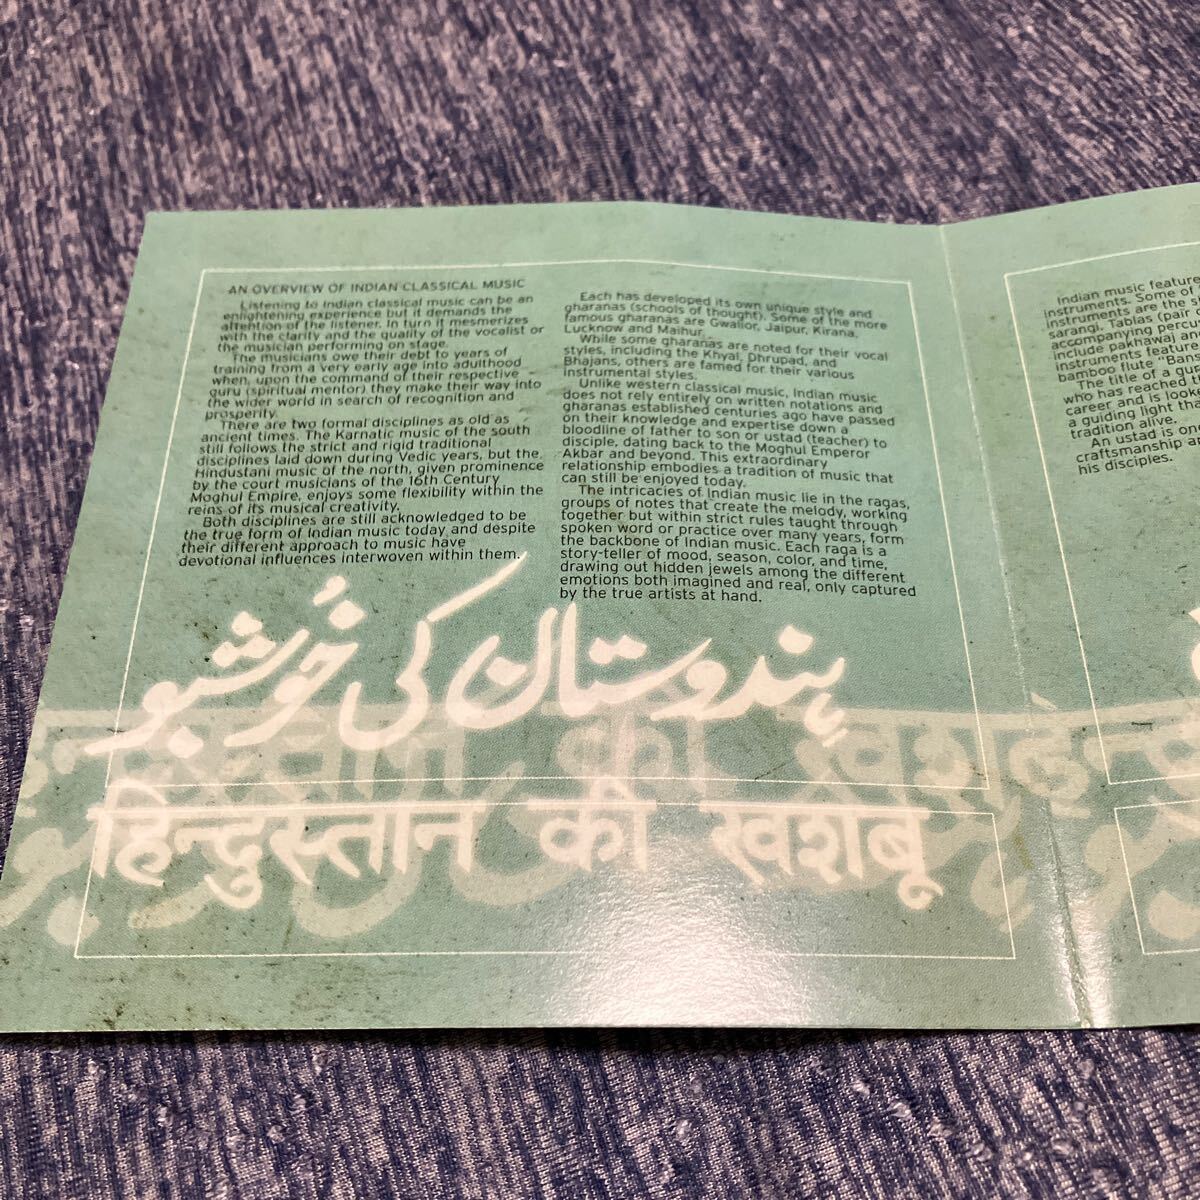 AN OVERVIEW OF INDIAN CLASSICAL MUSIC
Listening to Indian classical music can be an
enlightening experience but it demands the
attention of the listener. In turn it mesmerizes
with the clarity and the quality of the vocalist or
the musician performing on stage.
The musicians owe their debt to years of
training from a very early age into adulthood
when, upon the command of their respective
guru (spiritual mentor) they make their way into
the wider world in search of recognition and
prosperity.
There are two formal disciplines as old as
ancient times. The Karnatic music of the south
still follows the strict and rigid traditional
disciplines laid down during Vedic years, but the
Hindustani music of the north, given prominence
by the court musicians of the 16th Century
Moghul Empire, enjoys some flexibility within the
reins of its musical creativity.
Both disciplines are still acknowledged to be
the true form of Indian music today and despite
their different approach to music have
devotional influences interwoven within them.
Each has developed its own unique style and
gharanas (schools of thought). Some of the more
famous gharanas are Gwalior, Jaipur, Kirana,
Lucknow and Maihur.
While some gharanas are noted for their vocal
styles, including the Khyal, Dhrupad, and
Bhajans, others are famed for their various
instrumental styles.
Unlike western classical music, Indian music
does not rely entirely on written notations and
gharanas established centuries ago have passed
on their knowledge and expertise down a
bloodline of father to son or ustad (teacher) to
disciple, dating back to the Moghul Emperor
Akbar and beyond. This extraordinary
relationship embodies a tradition of music that
can still be enjoyed today.
The intricacies of Indian music lie in the ragas,
groups of notes that create the melody, working
together but within strict rules taught through
spoken word or practice over many years, form
the backbone of Indian music. Each raga is a
story-teller of mood, season, color, and time,
drawing out hidden jewels among the different
emotions both imagined and real, only captured
by the true artists at hand.
ہندوستان کی خُوشبو
हिन्दुस्तान की खशबू
Indian music feature
instruments. Some of
instruments are the s
sarangi. Tablas (pair
accompanying percu
include pakhawaj and
instruments feature
bamboo flute "Bans
The title of a gu
who has reached th
career and is looke
a guiding light tha
tradition alive.
An ustad is one
craftsmanship a
his disciples.